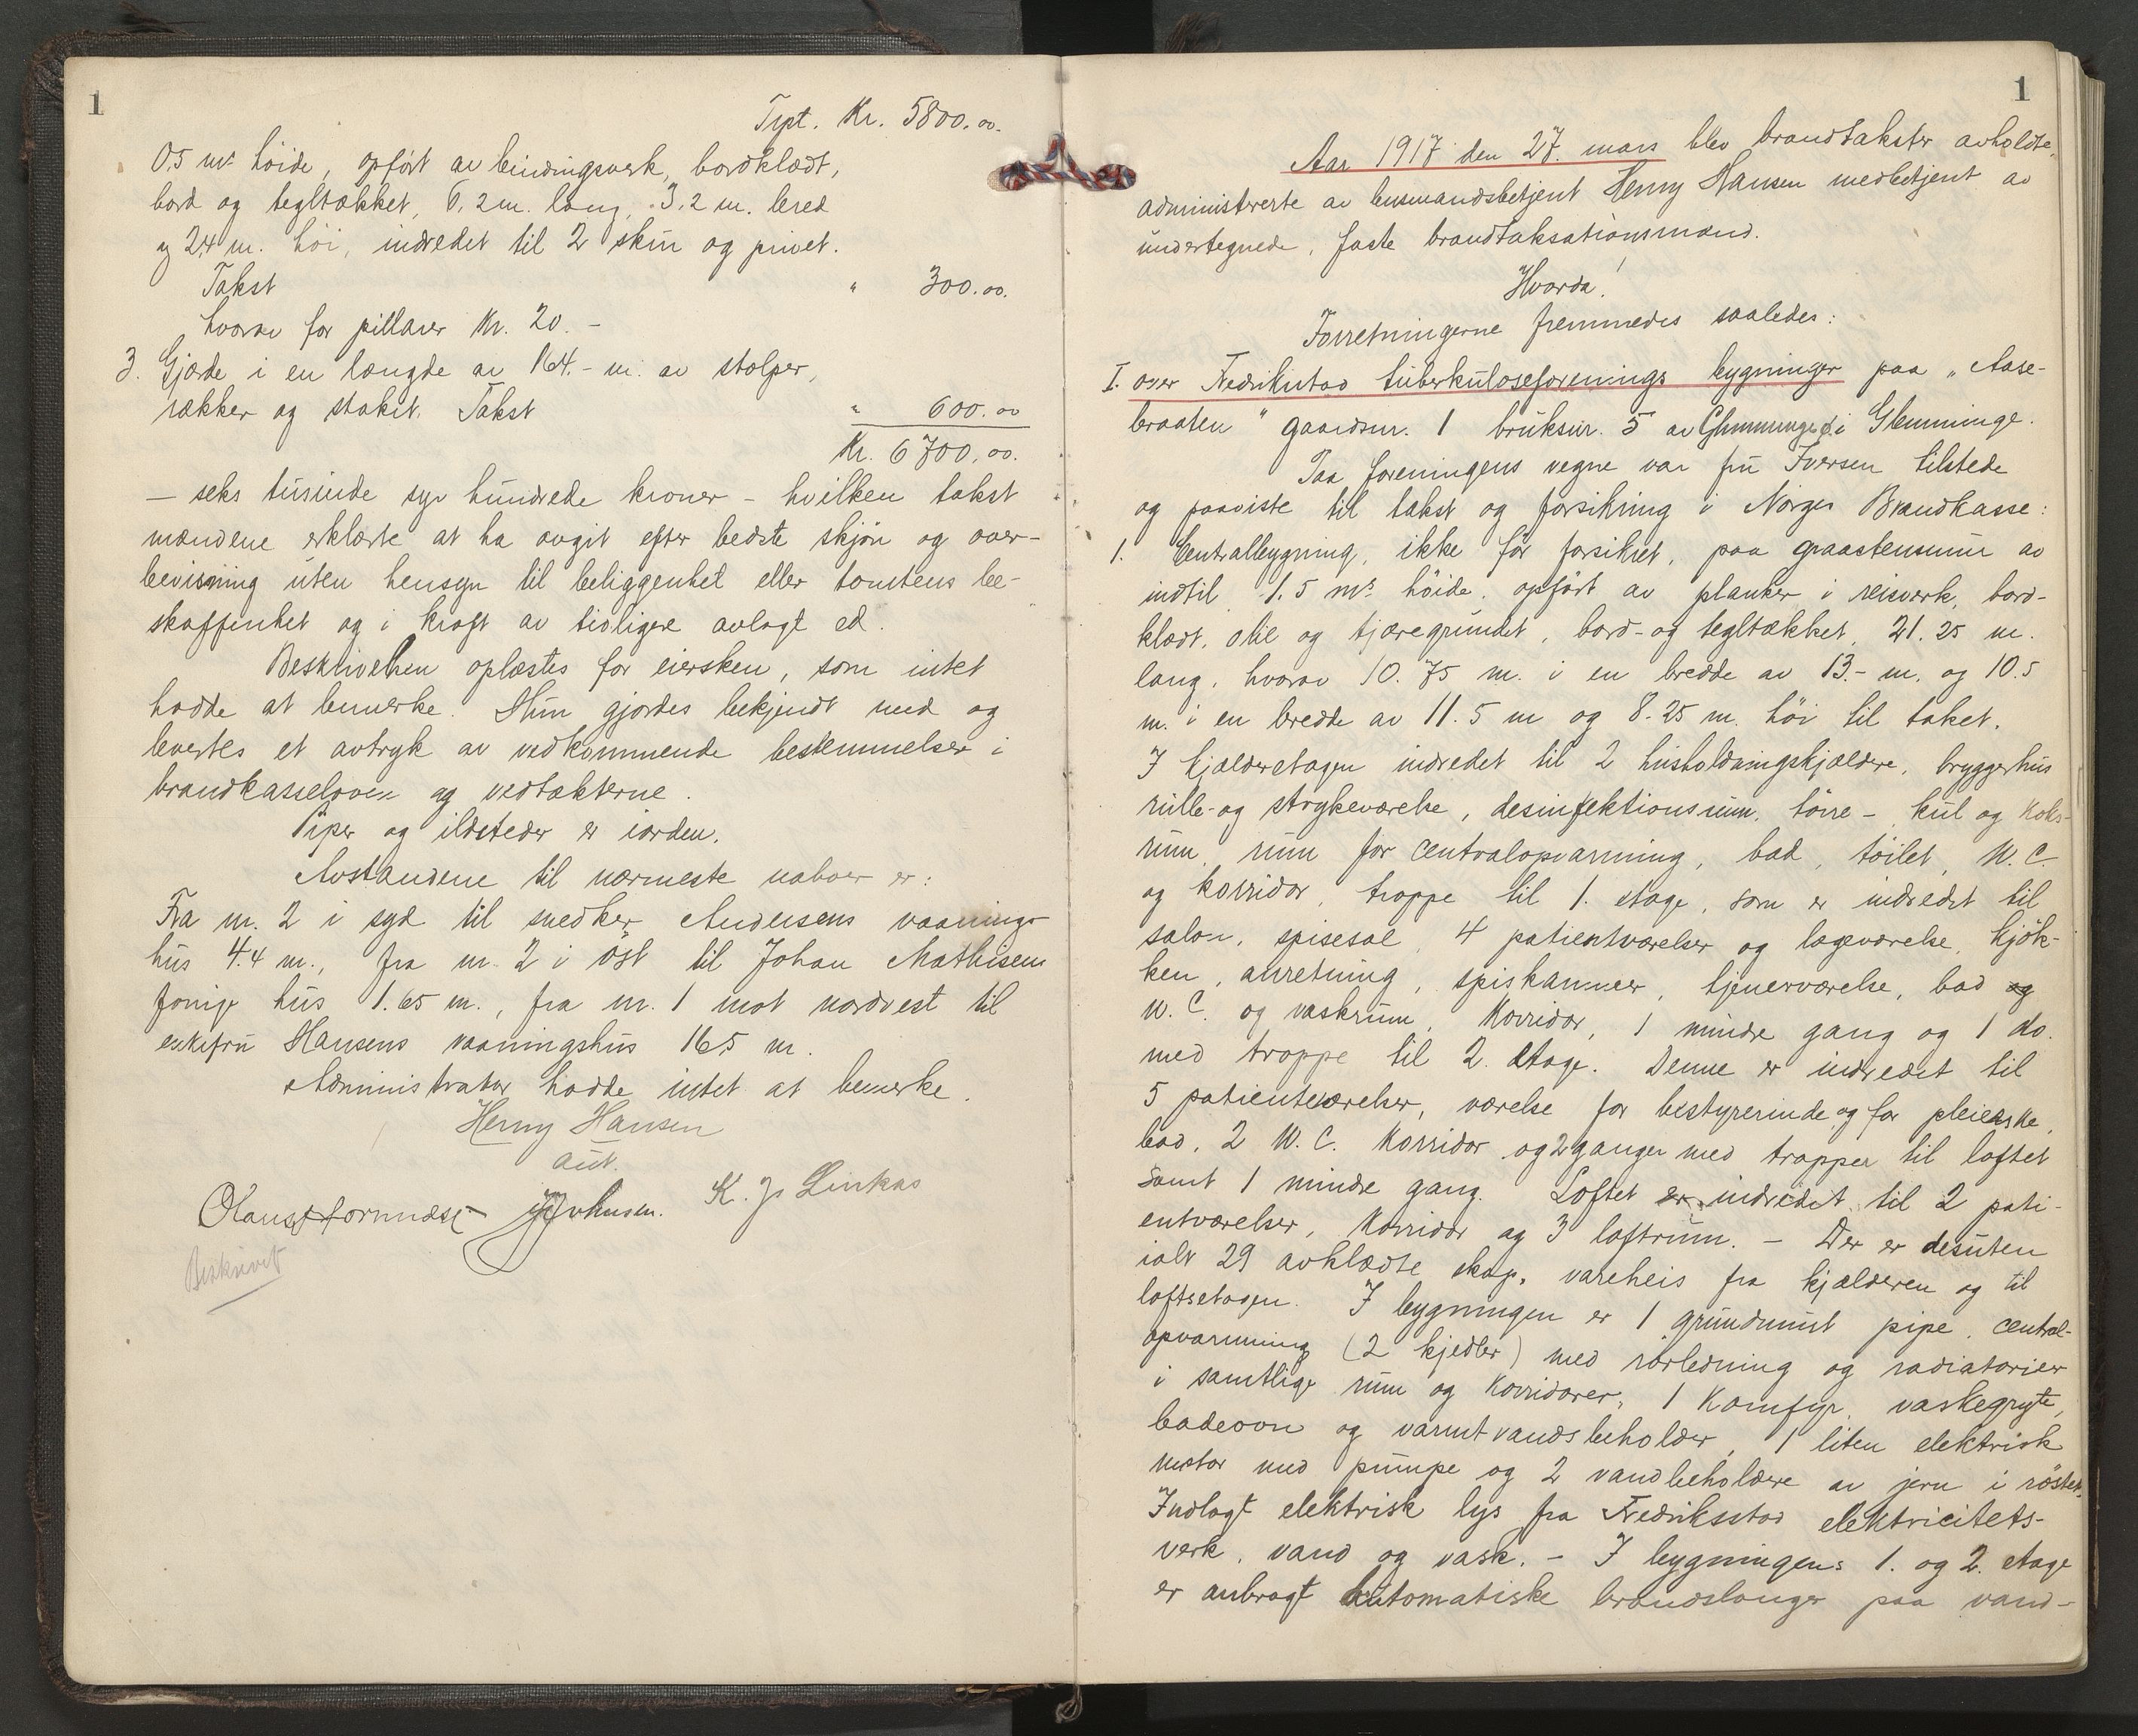 1
Trpt. Kr. 5800.00.
0.5 m's höide, opført av bindingsverk, bordklædt,
bord og tegltækket, 6.2 m. lang, 3.2 m. bred
og 2.4 m. höi, indredet til 2 skur og privet.
Takst " 300.00.
hvorav for pillarer Kr. 20.-
3. Gjærde i en længde av 164.- m. av stolper,
rækker og stakit. Takst " 600.00
Kr. 6700.00.
- seks tusinde syv hundrede kroner - hvilken takst
mændene erklærte at ha avgit efter bedste skjön og over-
bevisning uten hensyn til beliggenhet eller tomtens be-
skaffenhet og i kraft av tidligere avlagt ed.
Beskrivelsen oplæstes for eiersken, som intet
hadde at bemerke. Hun gjordes bekjendt med og
levertes et avtryk av vedkommende bestemmelser i
brandkasseloven og vedtækterne.
Piper og ildsteder er iorden.
Avstandene til nærmeste naboer er:
Fra nr. 2 i syd til snedker Andersens vaanings-
hus 4.4 m., fra nr. 2 i öst til Johan Mathisens
forrige hus 1.65 m., fra nr. 1 mot nordvest til
enkefru Hansens vaaningshus 16.5 m.
Administrator hadde intet at bemerke.
Henry Hansen
aut.
K. J. Linkas
Beskrevet
1
Aar 1917 den 27. mars blev brandtakster avholdte,
administrerte av lensmandsbetjent Henny Hansen medbetjent av
undertegnede, faste brandtaksationsmænd.
Hvorda!
Forretningerne fremmedes saaledes:
I. over Fredrikstad tuberkuloseforenings bygninger paa "Aase-
braaten" gaardsnr. 1 bruksnr. 5 av Glemminge i Glemminge.
Paa foreningens vegne var fru Iversen tilstede
og paaviste til takst og forsikring i Norges Brandkasse:
1. Centralbygning, ikke för forsikret, paa graastensmur av
indtil 1.5 m's höide, opfört av planker i reisverk, bord-
klædt, olie og tjæregrundet, bord- og tegltækket, 21.25 m.
lang, hvorav 10.75 m. i en bredde av 13.- m. og 10.5
m. i en bredde av 11.5 m og 8.25 m. höi til taket.
I kjælderetagen indredet til 2 husholdningskjældere, bryggerhus
rulle- og strykeværelse, desinfektionsrum, törre-, kul og koks-
rum, rum for centralopvarming, bad, toilet, W.C.
og korridor, trappe til 1. etage, som er indredet til
salon, spisesal, 4 patientværelser og lægeværelse, kjök-
ken, anretning, spiskammer, tjenerværelse, bad og
W.C. og vaskrum, korridor, 1 mindre gang og 1 do.
med trappe til 2. etage. Denne er indredet til
5 patientværelser, værelse for bestyrerinde og for pleierske,
bad, 2 W.C. Korridor og 2 ganger med trapper til loftet
samt 1 mindre gang. Loftet er indredet til 2 pati-
entværelser, korridor og 3 loftrum. - Der er desuten
ialt 29 avklædte skap, vareheis fra kjælderen og til
loftsetagen. I bygningen er 1 grundmurt pipe, central-
opvarmning (2 kjedler) med rörledning og radiatorier
i samtlige rum og korridorer, 1 Komfyr, vaskegryte,
badeovn og varmtvandsbeholder, 1 liten elektrisk
motor med pumpe og 2 vandbeholdere av jern i röstet.
Indlagt elektrisk lys fra Fredriksstad elektricitets-
verk, vand og vask. - I bygningens 1. og 2. etage
er anbragt automatiske brandslanger paa vand-